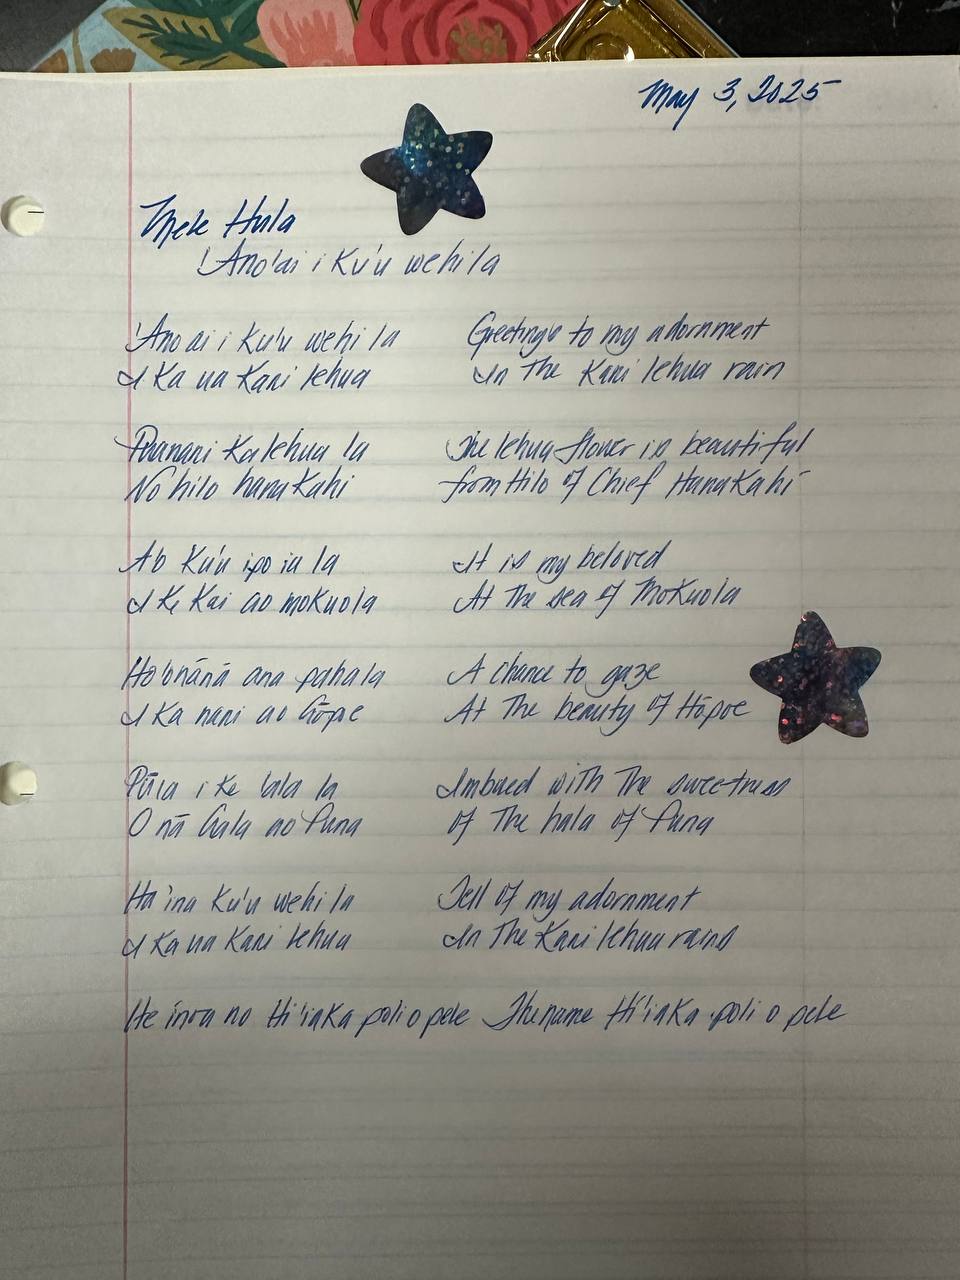 May 3, 2025
Mele Hula
'Ano'ai i Ku'u wehi la
'Ano ai i Ku'u wehi la Greetings to my adornment
I Ka ua Kani lehua In The Kani lehua rain
Ka lehua la The lehua flower is beautiful
No hilo hana Kahi from Hilo of Chief HanaKahi
Ku'u ipo ia la It is my beloved
I Ke Kai ao moKuola At The sea of MoKuola
ana paha la A chance to gaze
I Ka nani ao Hōpoe At The beauty of Hōpoe
i Ke lala la Imbued with The sweetness
O nā hala ao Puna of The hala of Puna
Ha'ina Ku'u wehi la Tell of my adornment
I Ka ua Kani lehua In The Kani lehua rains
He inoa no Hi'iaKa poli o pele The name Hi'iaKa poli o pele